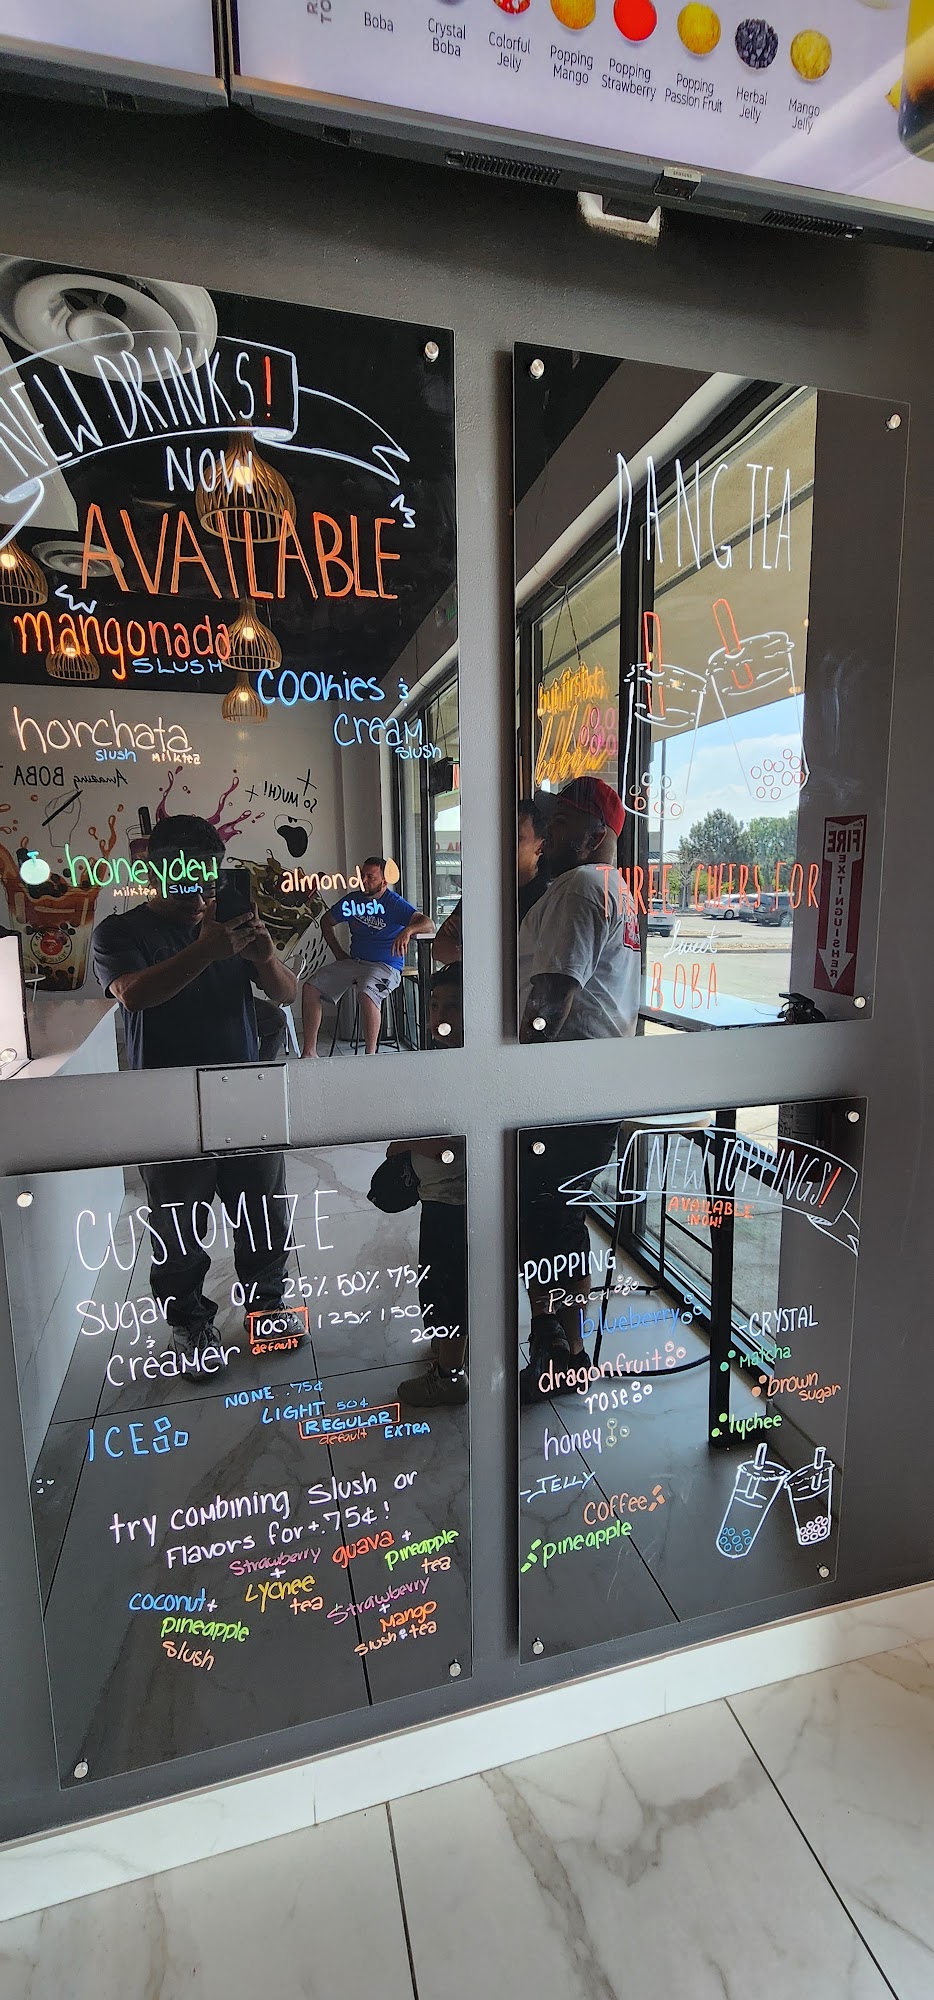 Boba
Crystal
Boba
Colorful
Jelly
Popping
Mango
Popping
Strawberry
Popping
Passion Fruit
Herbal
Jelly
Mango
Jelly
SAMSUNG
NEW DRINKS!
NOW
AVAILABLE
mangonada
SLUSH
COOKies &
CREAM
Slush
horchata
slush milktea
Amazing BOBA
SO MUCH!
honeydew
milktea slush
almond
slush
DANG TEA
but first
boba
THREE CHEERS FOR
Sweet
BOBA
FIRE
EXTINGUISHER
CUSTOMIZE
Sugar
&
CREAMER
0% 25% 50% 75%
100% 125% 150%
default
200%
ICE
NONE .75¢
LIGHT .50¢
REGULAR
default
EXTRA
try combining Slush or
Flavors for +.75¢!
Strawberry
+
Lychee
tea
guava +
pineapple
tea
coconut +
pineapple
slush
Strawberry
+
Mango
slush & tea
NEW TOPPINGS!
AVAILABLE
NOW!
-POPPING
Peach
blueberry
dragonfruit
rose
honey
-CRYSTAL
Matcha
brown
sugar
lychee
-JELLY
coffee
pineapple